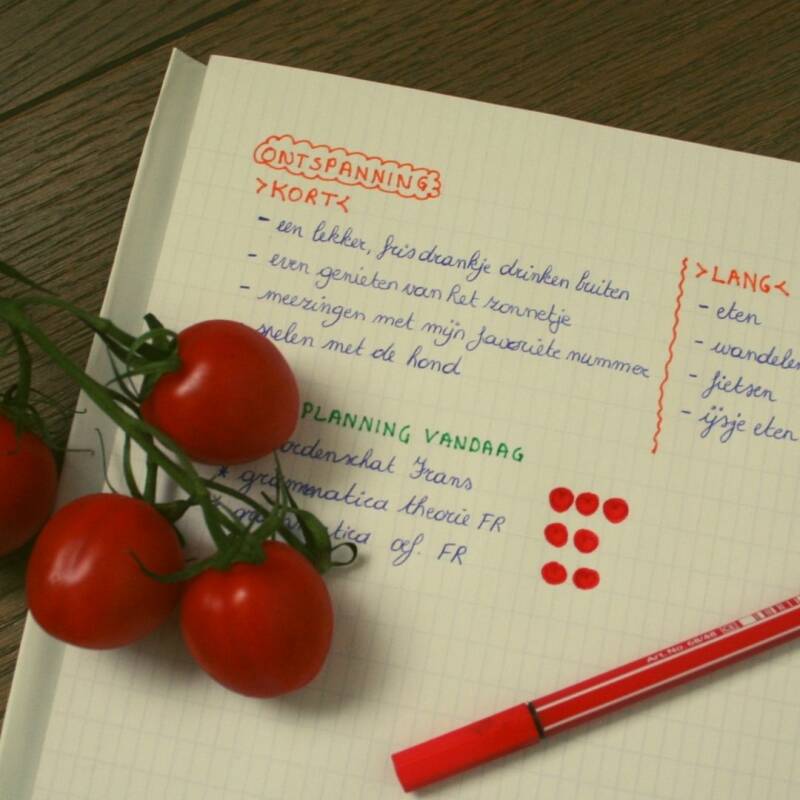 ONTSPANNING:
>KORT<
- een lekker, fris drankje drinken buiten
- even genieten van het zonnetje
- meezingen met mijn favoriete nummer
spelen met de hond
>LANG<
- eten
- wandelen
- fietsen
- ijsje eten
PLANNING VANDAAG
ordenschat Frans
* grammatica theorie FR
* grammatica oef. FR
Art. No 68/48